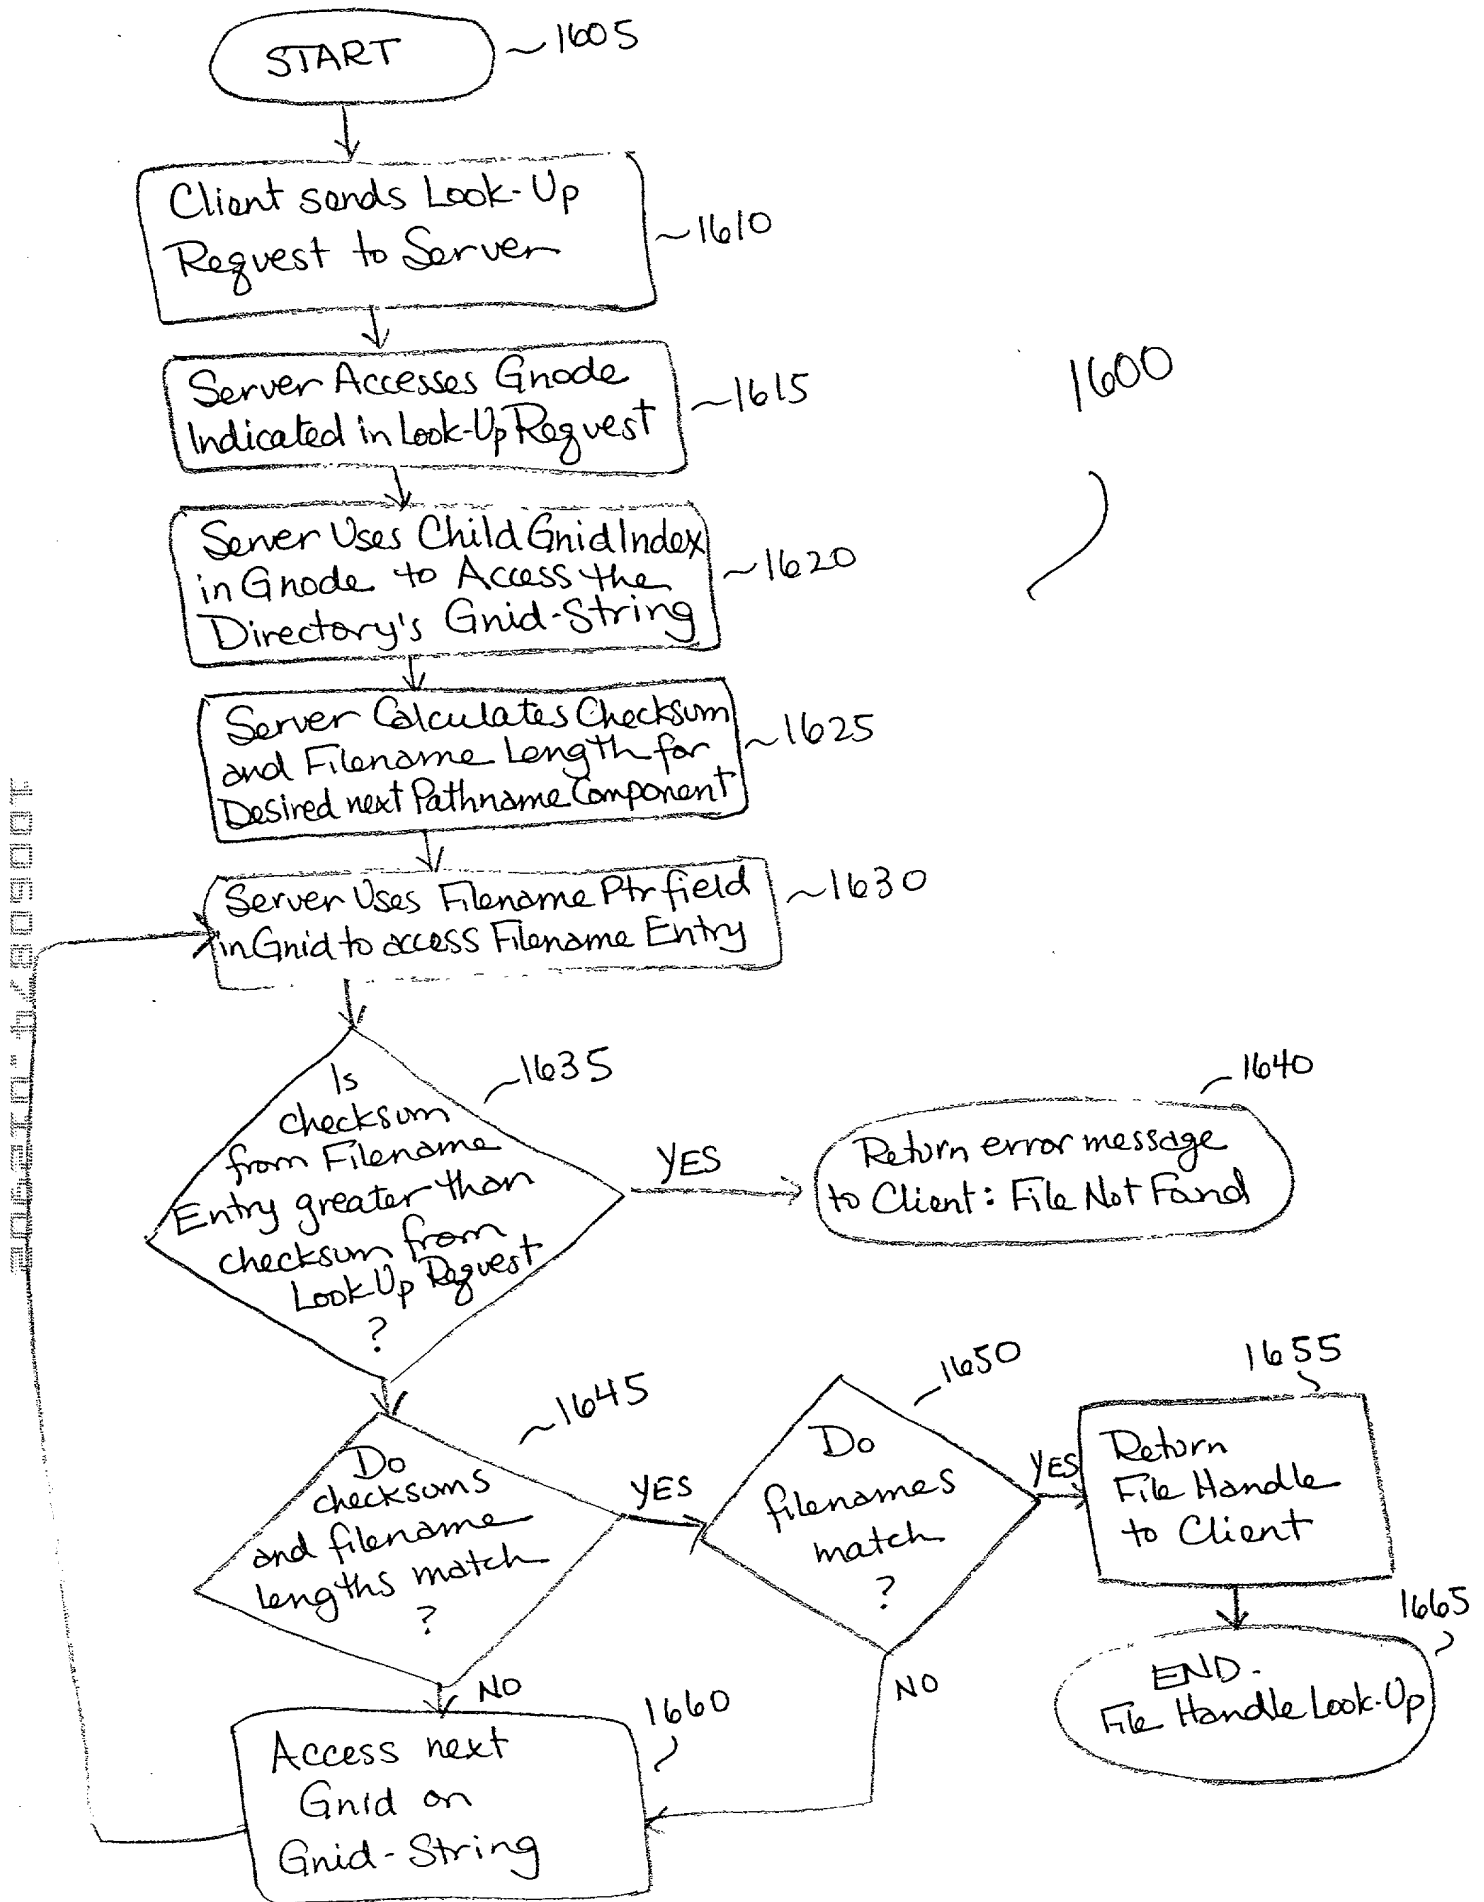 START
1605
Client sends Look-Up
Request to Server
1610
Server Accesses Gnode
Indicated in Look-Up Request
1615
1600
Server Uses Child Gnid Index
in Gnode to Access the
Directory's Gnid-String
1620
Server Calculates Checksum
and Filename Length for
Desired next Pathname Component
1625
Server Uses Filename Ptr field
in Gnid to access Filename Entry
1630
Is
checksum
from Filename
Entry greater than
checksum from
Look Up Request
?
1635
YES
1640
Return error message
to Client: File Not Fand
Do
checksums
and filename
lengths match
?
1645
YES
Do
filenames
match
?
1650
YES
1655
Return
File Handle
to Client
1665
END-
File Handle Look-Up
NO
NO
Access next
Gnid on
Gnid-String
1660